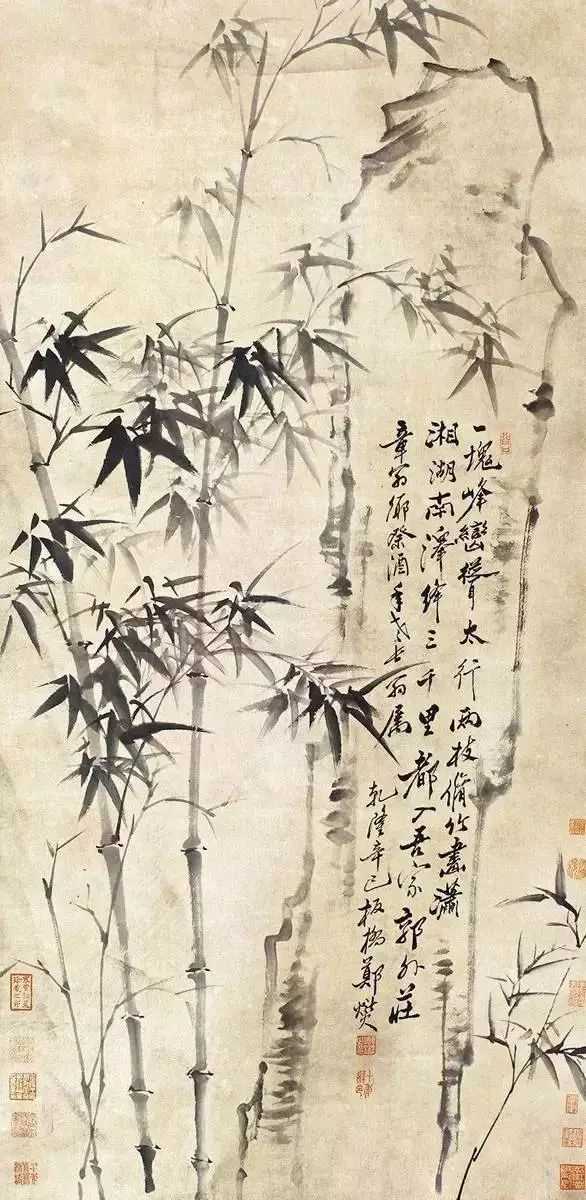 一塊峰巒聳太行兩枝脩竹畫瀟
湘湖南澤絳三千里都入吾家郭外莊
章翁鄉祭酒年老長翁屬
乾隆辛巳板橋鄭燮